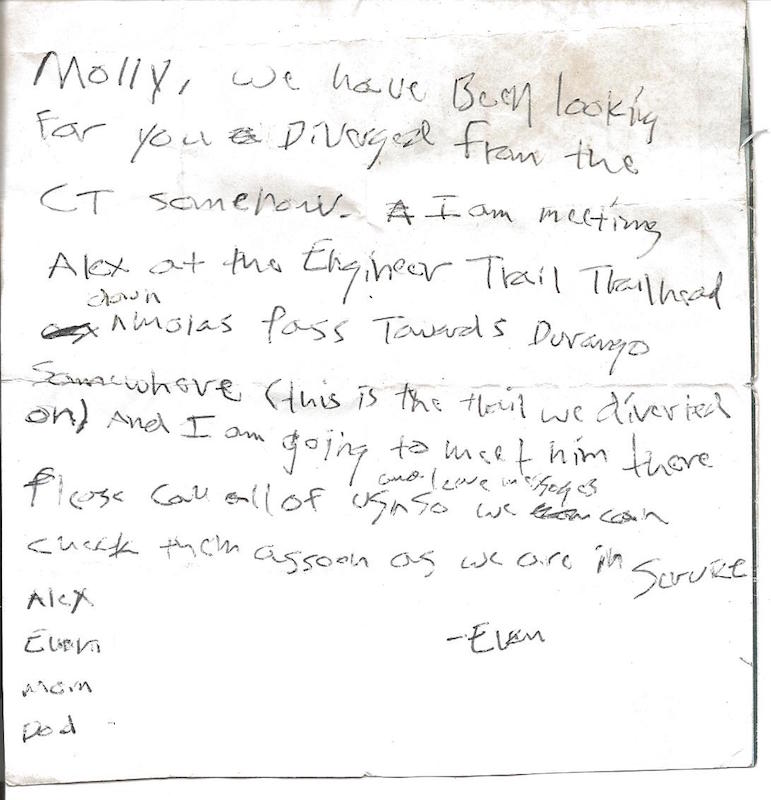 Molly, we have Been looking
For you Diverged from the
CT somehow. I am meeting
Alex at the Engineer Trail Trailhead
down
Pass Towards Durango
Somewhere (this is the trail we diverted
on) And I am going to meet him there
and leave messages
Please call all of us so we can
check them assoon as we are in Service
Alex
Evan
-Evan
Mom
Dad